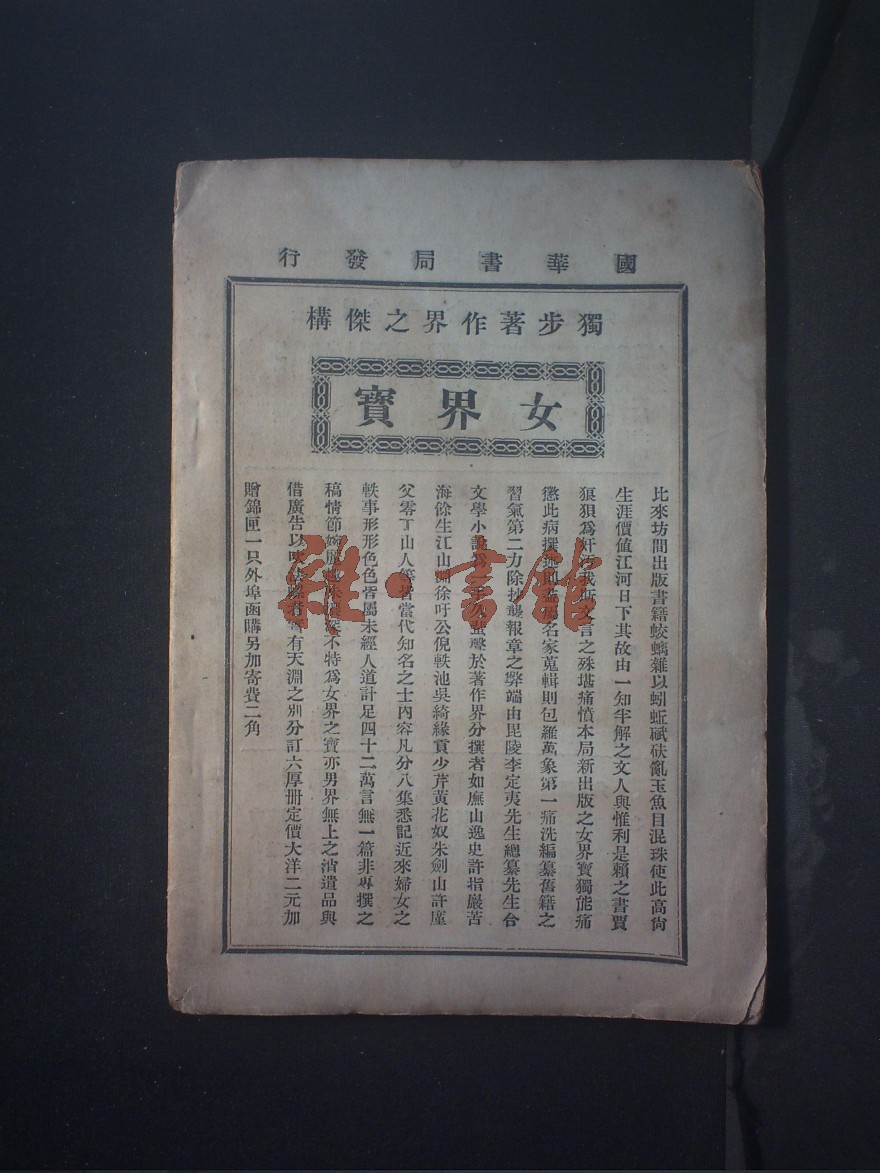 國華書局發行
獨步著作界之傑構
女界寶
比來坊間出版書籍蛟螭雜以蚓蚯碔砆亂玉魚目混珠使此高尙
生涯價值江河日下其故由一知半解之文人與惟利是賴之書賈
狼狽爲奸汚我斯文言之殊堪痛憤本局新出版之女界寶獨能痛
懲此病撰述則名家蒐輯則包羅萬象第一痛洗編纂舊籍之
習氣第二力除抄襲報章之弊端由毘陵李定夷先生總纂先生台
文學小說聲於著作界分撰者如廡山逸史許指嚴苦
海餘生江山淵徐吁公倪軼池吳綺緣貢少芹黃花奴朱劍山許廑
父零丁山人等皆當代知名之士內容凡分八集悉記近來婦女之
軼事形形色色皆屬未經人道計足四十二萬言無一篇非專撰之
稿情節不特爲女界之寶亦男界無上之消遣品與
借廣告以者有天淵之別分訂六厚冊定價大洋二元加
贈錦匣一只外埠函購另加寄費二角
雜·書館